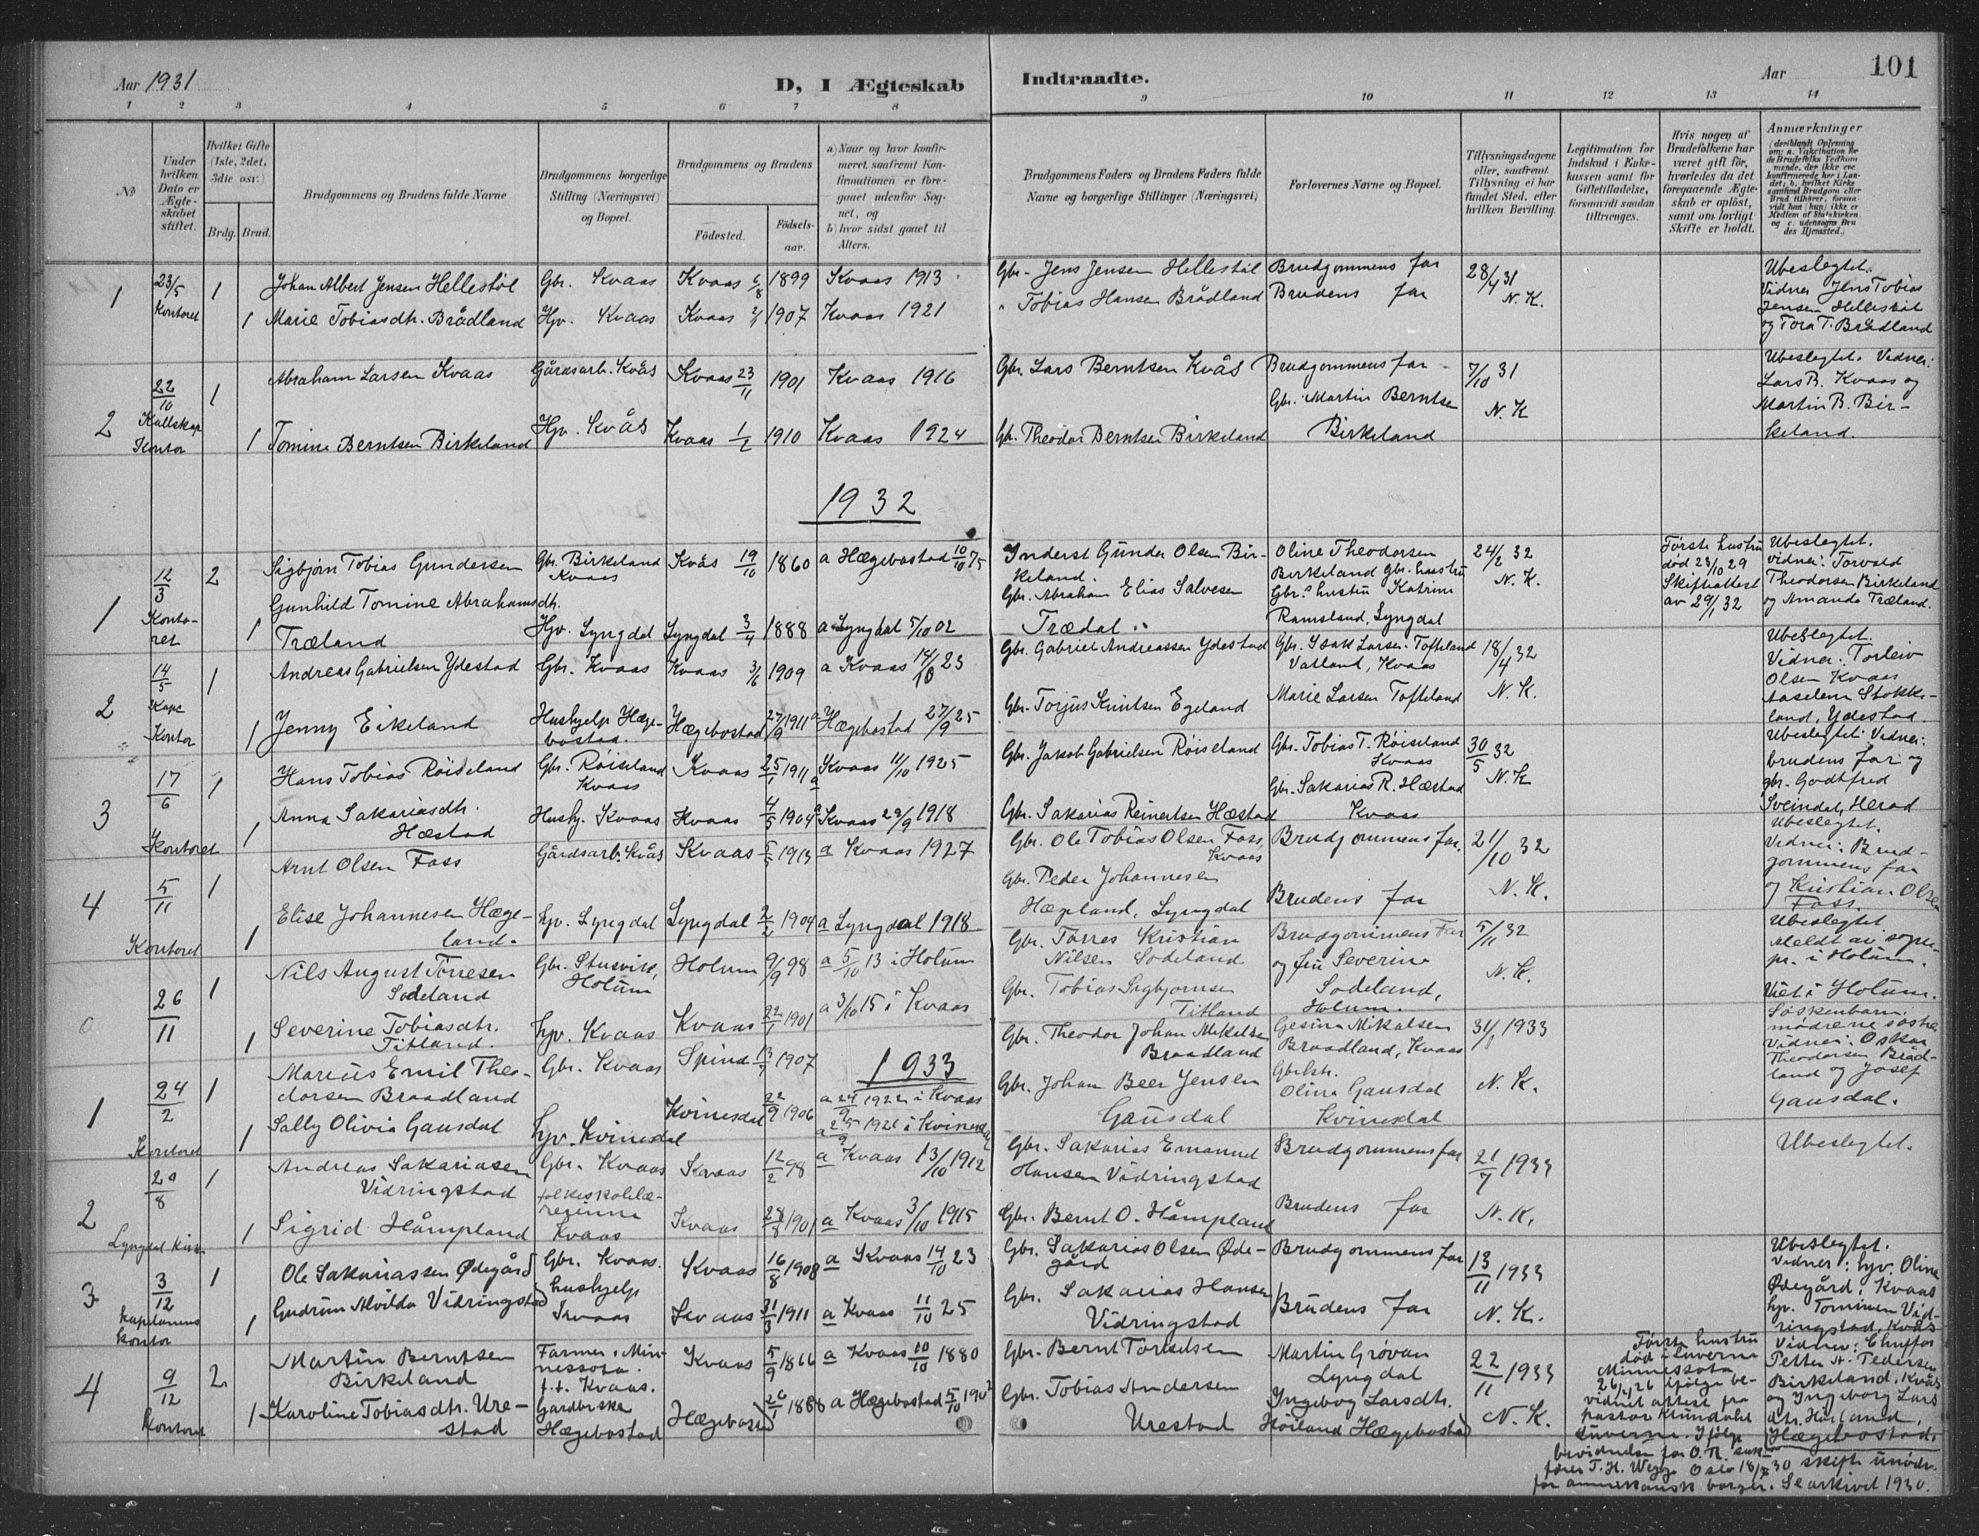 Aar 1931
D, I Ægteskab
Indtraadte.
Aar
101
1 2 3 4 5 6 7 8 9 10 11 12 13 14
No
Under hvilken Dato er Ægteskabet stiftet.
Hvilket Gifte (1ste, 2det, 3die osv.)
Brdg. Brud.
Brudgommens og Brudens fulde Navne
Brudgommens borgerlige Stilling (Næringsvei) og Bopæl.
Brudgommens og Brudens
Fødested.
Fødselsaar.
a) Naar og hvor konfirmeret, saafremt Konfirmationen er foregaaet udenfor Sognet, og
b) hvor sidst gaaet til Alters.
Brudgommens Faders og Brudens Faders fulde Navne og borgerlige Stillinger (Næringsvei)
Forlovernes Navne og Bopæl.
Tillysningsdagene eller, saafremt Tillysning ei har fundet Sted, efter hvilken Bevilling.
Legitimation for Indskud i Enkekassen samt for Giftetilladelse, forsaavidt saadan tiltrænges.
Hvis nogen af Brudefolkene har været gift før, hvorledes da det foregaaende Ægteskab er opløst, samt om lovligt Skifte er holdt.
Anmærkninger
1 23/5 Kontoret 1 Johan Albert Jensen Hellestøl Gbr. Kvaas Kvaas 6/8 1899 Kvaas 1913 Gbr. Jens Jensen Hellestøl Brudgommens far 28/4 31 N. K. Ubeslegtet. Vidner Jens Tobias Jensen Hellestøl og Tora T. Brådland
1 Marie Tobiasdtr. Brådland Hjv. Kvaas Kvaas 1907 Kvaas 1921 " Tobias Hansen Brådland Brudens far
2 22/10 Kontor 1 Abraham Larsen Kvaas Gårdsarb. Kvås Kvaas 23/11 1901 Kvaas 1916 Gbr. Lars Berntsen Kvås Brudgommens far 7/10 31 N. K Ubeslegtet. Vidner: Lars B. Kvaas og Martin B. Birkeland.
1 Tomine Berntsen Birkeland Hjv. Kvås Kvaas 1/2 1910 Kvaas 1924 Gbr. Theodor Berntsen Birkeland Gbr. Martin Berntsen Birkeland
1932
1 12/3 Kontoret 2 Sigbjørn Tobias Gundersen Gbr. Birkeland Kvaas Kvås 19/10 1860 a Hægebostad 10/10 75 Inderst Gunder Olsen Birkeland. Oline Theodorsen Birkeland gbr. hustru 24/2 32 N. K. Første hustru død 28/10 29 Skifteattest av 29/1 32 Ubeslegtet. Vidner: Torvald Theodorsen Birkeland og Amanda Træland.
1 Gunhild Tomine Abrahamsdtr. Træland Hjv. Lyngdal Lyngdal 3/4 1888 a Lyngdal 5/10 02 Gbr. Abraham Elias Salvesen Trædal Gbr. hustru Katrine Ramsland, Lyngdal
2 14/5 Kontor 1 Andreas Gabrielsen Ydestad Gbr. Kvaas Kvaas 3/6 1909 a Kvaas 14/10 23 Gbr. Gabriel Andreassen Ydestad Gbr. Isak Larsen Tofteland Vatland, Kvaas 18/4 32 N. K. Ubeslegtet. Vidner: Torleiv Olsen Kvaas Aaselem Stokkeland, Ydestad.
1 Jenny Eikeland Hushjelp Hægebostad. Hægebostad 27/9 1911 a Hægebostad 27/9 25 Gbr. Torjus Knutsen Egeland Marie Larsen Tofteland
3 17/6 Kontoret 1 Hans Tobias Røiseland Gbr. Røiseland Kvaas Kvaas 25/1 1911 a Kvaas 11/10 1925 Gbr. Jakob Gabrielsen Røiseland Gbr. Tobias T. Røiseland Kvaas 30/5 32 N. K Ubeslegtet. Vidner: brudens far og gbr. Godtfred Sveindal, Herad
1 Anna Sakariasdtr. Hæstad Hushj. Kvaas Kvaas 4/5 1904 a Kvaas 29/9 1918 Gbr. Sakarias Reinertsen Hæstad Gbr. Sakarias R. Hæstad Kvaas
4 5/11 Kontoret 1 Arnt Olsen Foss Gårdsarb. Kvås Kvaas 1913 a Kvaas 1927 Gbr. Ole Tobias Olsen Foss, Kvaas Brudgommens far. 21/10 32 N. K. Ubeslegtet. Vidner: Brudgommens far og Kristian Olsen Foss.
1 Elise Johannesen Hægeland. hjv. Lyngdal Lyngdal 2/2 1904 a Lyngdal 1918 Gbr. Peder Johannesen Hægeland, Lyngdal Brudens far
0 26/11 1 Nils August Torresen Sodeland Gbr. Stusvik, Holum Holum 9/9 98 a 5/10 13 i Holum Gbr. Torres Kristian Nilsen Sodeland Brudgommens Far og fru Severine Sodeland, Holum. 5/11 32 N. K. Ubeslegtet. Meldt av sognepr. i Holum. Viet i Holum.
1 Severine Tobiasdtr. Titland. hjv. Kvaas Kvaas 22/1 1901 a 3/10 15 i Kvaas Gbr. Tobias Sigbjørnsen Titland
1933
1 24/2 Kontoret 1 Marius Emil Theodorsen Braadland Gbr. Kvaas Spind 1907 a 24/9 1922 i Kvaas Gbr. Theodor Johan Mikelsen Braadland Gesine Mikalsen Braadland, Kvaas 31/1 1933 N. K. Søskenbarn, mødrene søstre Vidner: Oskar Theodorsen Brådland og Josef Gausdal.
1 Sally Olivia Gausdal hjv. Kvinesdal Kvinesdal 22/9 1906 a 25/9 1921 i Kvinesdal Gbr. Johan Beer Jensen Gausdal Gbrlstr. Olina Gausdal Kvinesdal
2 20/8 Lyngdal 1 Andreas Sakariasen Vidringstad Gbr. Kvaas Kvaas 12/2 98 a Kvaas 13/10 1912 Gbr. Sakarias Emanuel Hansen Vidringstad Brudgommens far 21/7 1933 N. K. Ubeslegtet.
1 Sigrid Håmpland folkeskolelærerinne Kvaas Kvaas 28/8 1901 a Kvaas 3/10 1915 Gbr. Bernt O. Håmpland Brudens far
3 3/12 kapelanens kontor 1 Ole Sakariassen Ødegård Gbr. Kvaas. Kvaas 16/8 1908 a Kvaas 14/10 23 Gbr. Sakarias Olsen Ødegård Brudgommens far 13/11 1933 N. K. Ubeslegtet. Vidner: hjv. Oline Ødegård, Kvaas hjv. Tominen Vidringstad, Kvås
1 Gudrun Alvilda Vidringstad hushjelp Kvaas Kvaas 31/3 1911 a Kvaas 11/10 25 Gbr. Sakarias Hansen Vidringstad Brudens far
4 9/12 kontoret 2 Martin Berntsen Birkeland Farmer i Minnessota. f.t. Kvaas. Kvaas 5/9 1866 a Kvaas 10/10 1880 Gbr. Bernt Torkelsen Martin Grøvan Lyngdal 22/11 1933 N. K. Første hustru død i Luverne Minnessota 26/1 26 ifølge bevidnet attest fra pastor Klundalet Luverne. Ifølge bevidnelse fra O. R. sakfører T. H. Wegge Oslo 18/7 30 skifte unødv. for amerikansk borger. Se arkivet 1930. Vidner: Chuffør Petter A. Pedersen Birkeland, Kvås og Ingeborg Larsdtr. Høiland, Hægebostad.
1 Karoline Tobiasdtr. Urestad Gardbruker Hægebostad Hægebostad 26/1 1888 a Hægebostad 5/10 1902 Gbr. Tobias Andersen Urestad Ingebog Larsdtr. Høiland Hægebostad